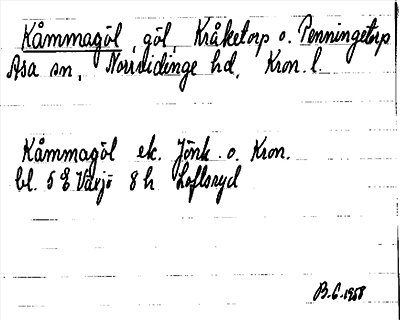 Kåmmagöl, göl, Kråketorp o. Penningetorp
Asa sn, Norrvidinge hd, Kron. l.
Kåmmagöl ek. Jönk. o. Kron.
bl. 5 E Växjö 8 h Loftsryd
B. G. 1958